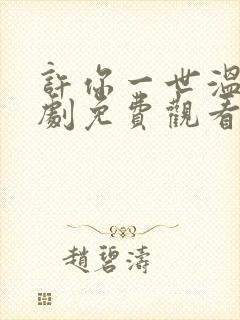 許你一世溫
劇免費觀看
趙碧濤